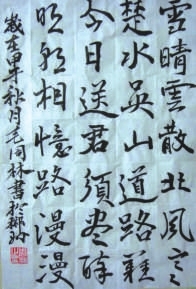 雪晴雲散北風寒
楚水吴山道路難
今日送君須尽醉
明朝相憶路漫漫
歲在甲午秋月毛同林書於